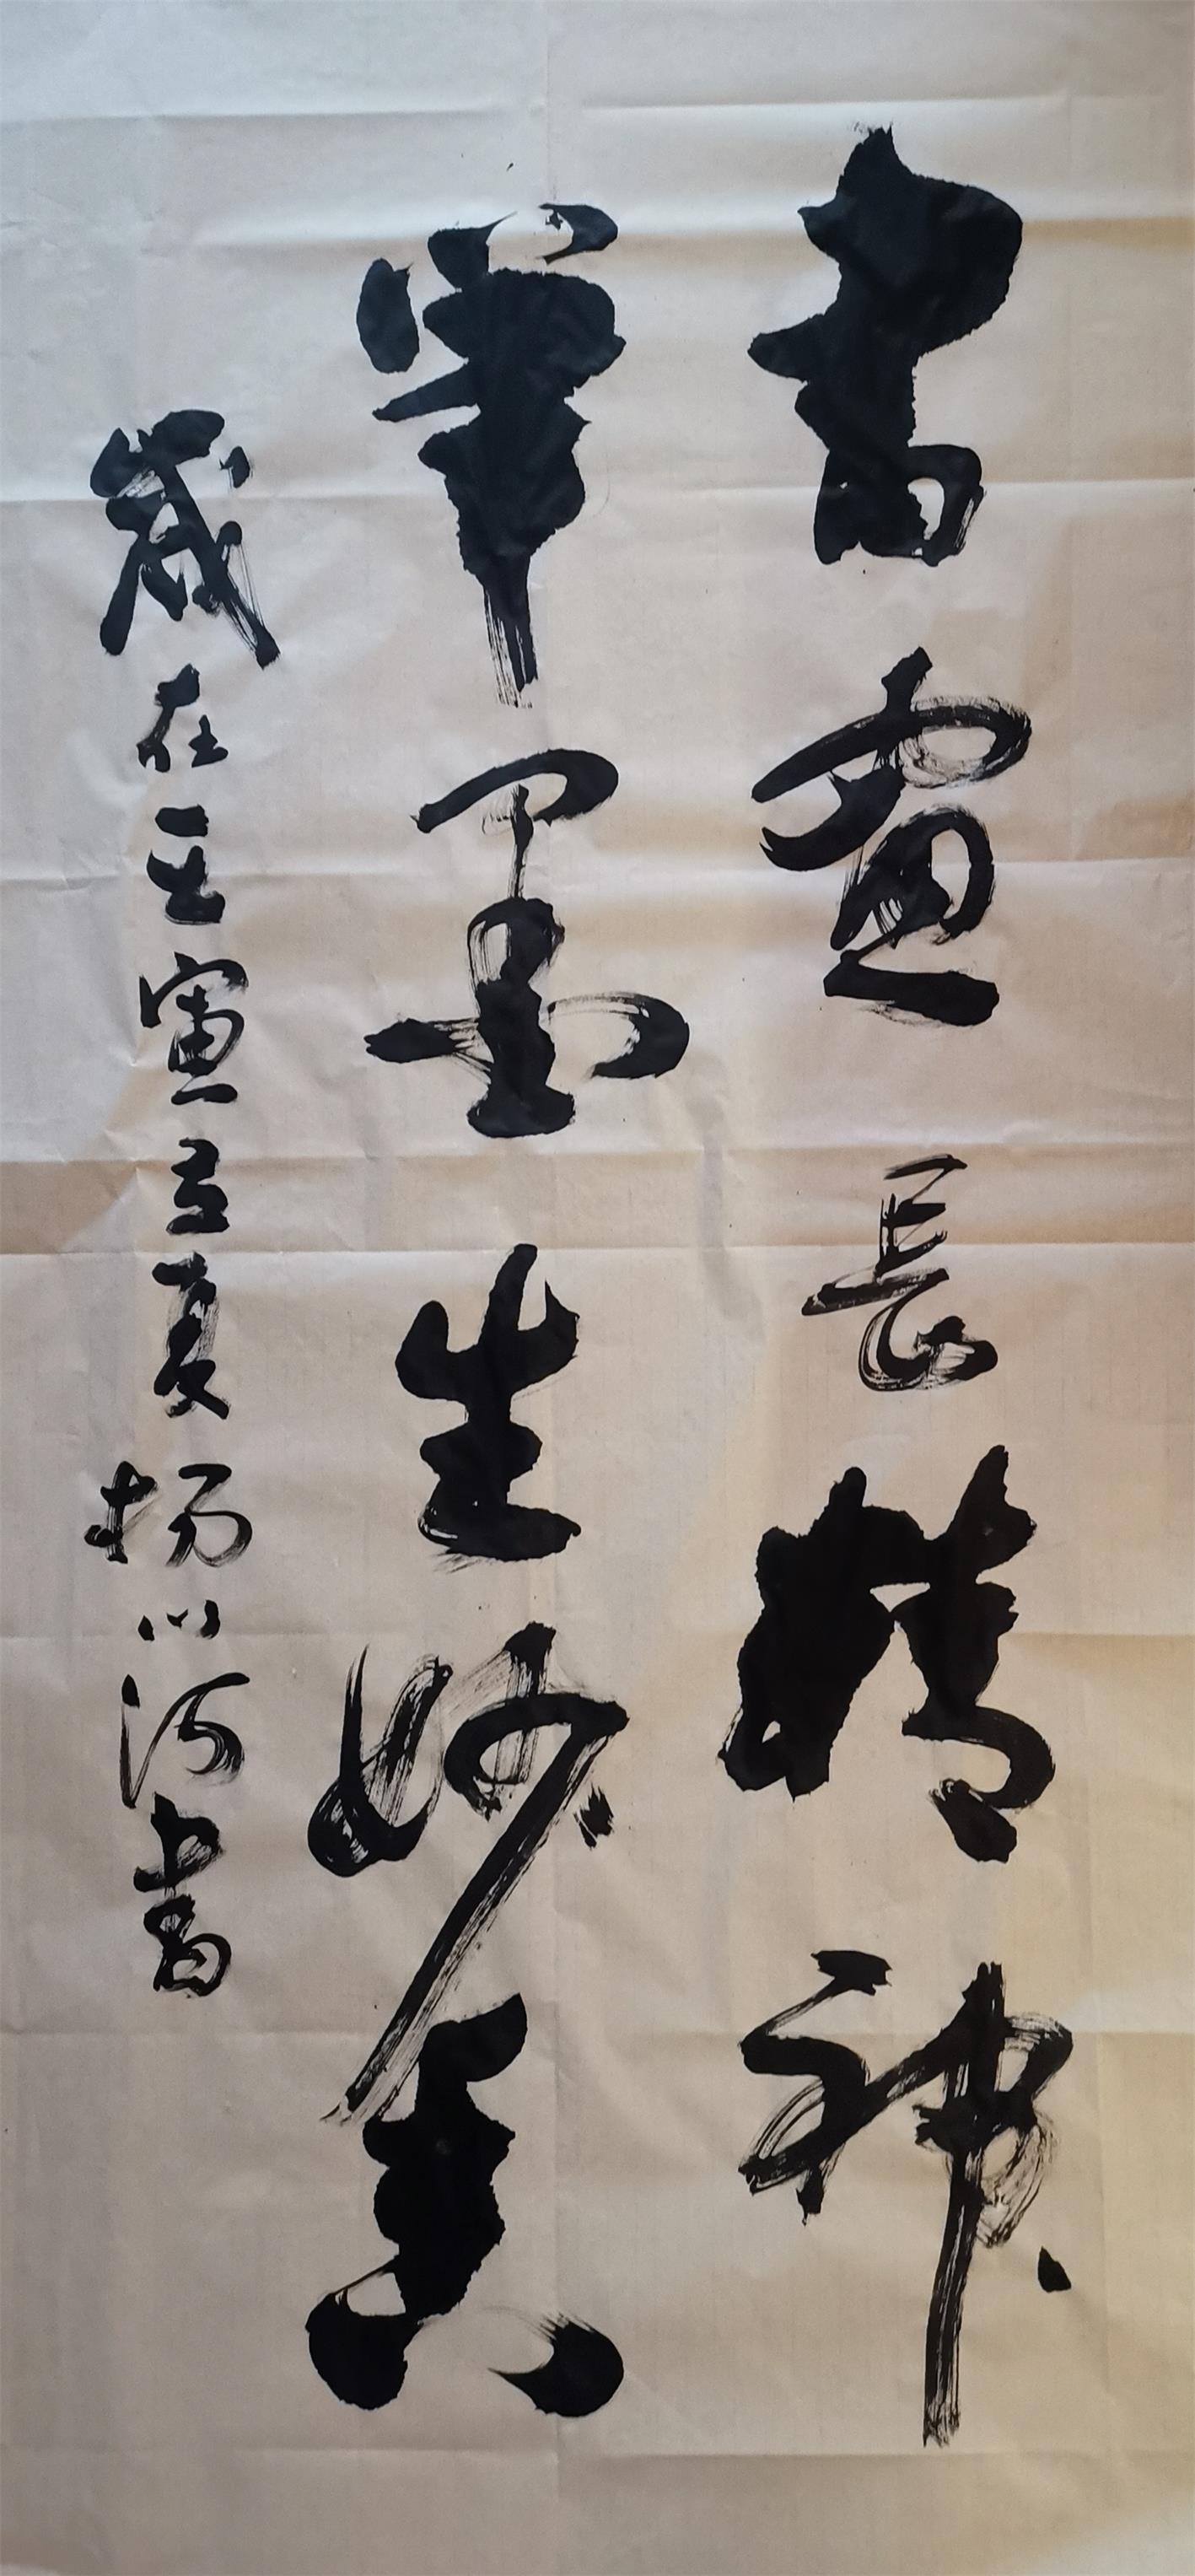 書畫長精神
筆墨生妙真
歲在壬寅立夏楊以河書